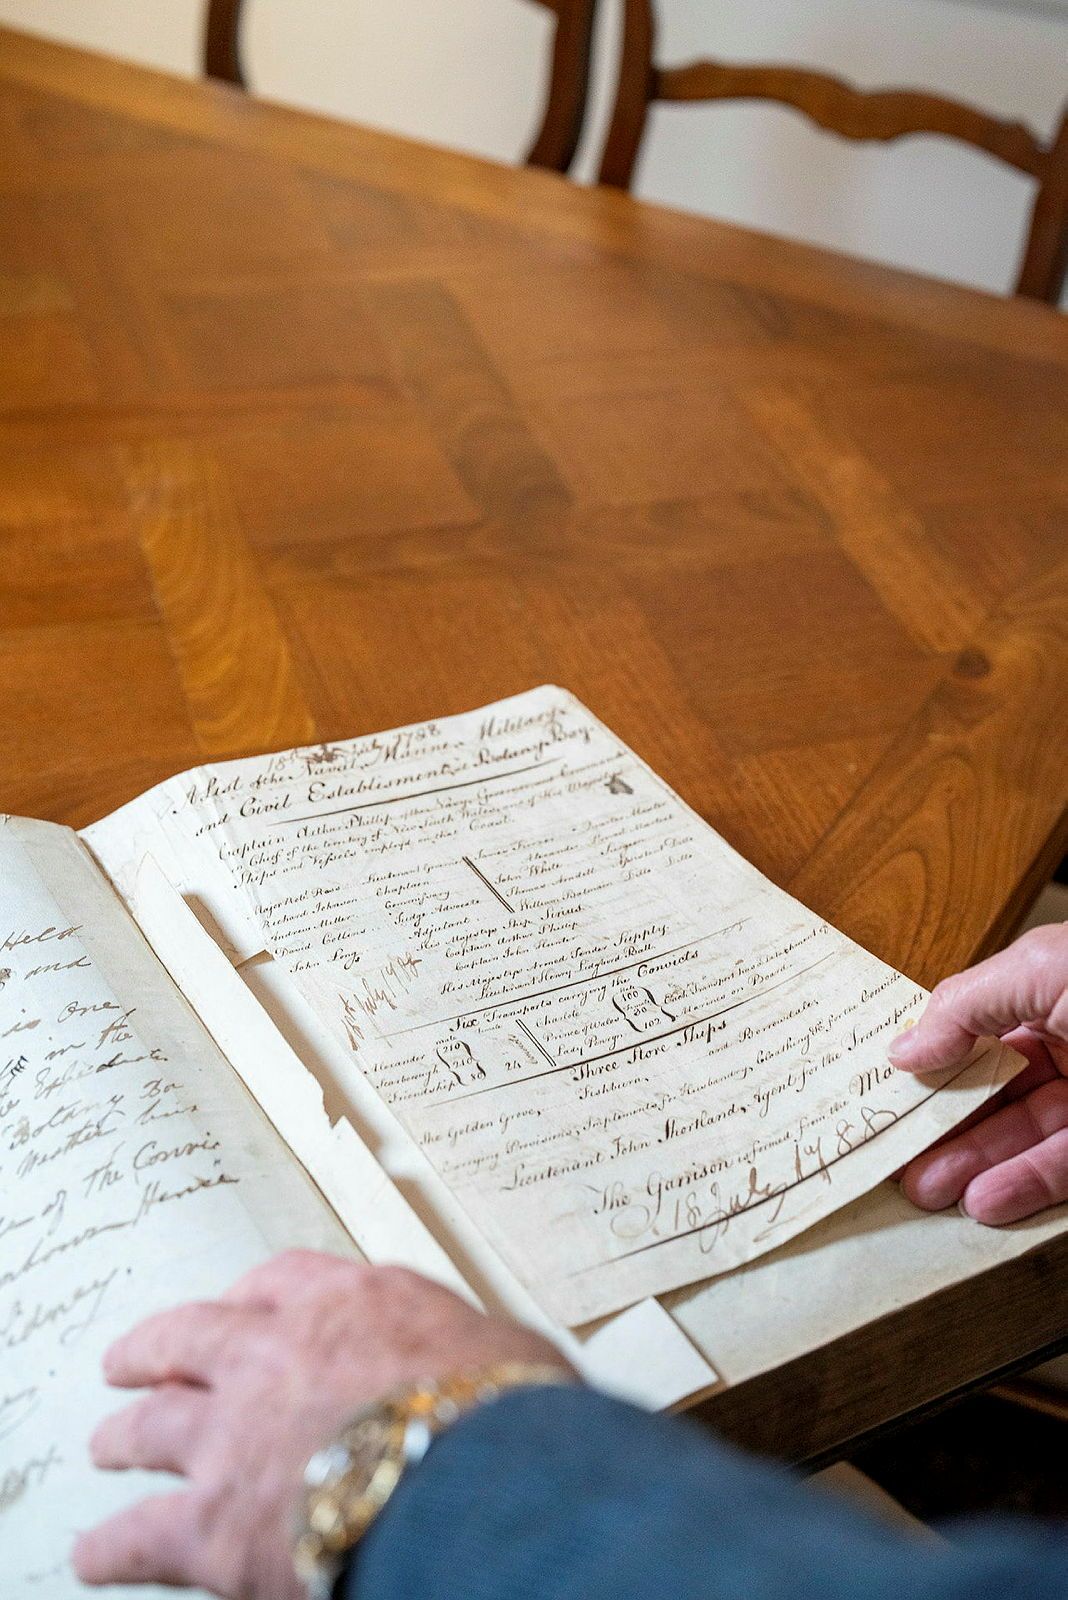 Held
and
is one
in the
Botany Ba
Weather
of The Convic
Sidney.
18th July 1788
A List of the Naval, Marine, Military
and Civil Establisment at Botany Bay.
Captain Arthur Phillip of the Navy, Governor & Command
in Chief of the territory of New South Wales, and of His Majesty's
Ships and Vessels employ'd on that Coast.
Major Robt. Ross - Lieutenant Governor
Richard Johnson Chaplain
Andrew Miller Commissary
David Collins Judge Advocate
John Long Adjutant
James Furzer Quarter Master
Alexander Provost Marshal
John White Surgeon
Thomas Arndell Assistant Ditto
William Balmain Ditto
His Majestys Ship Sirius
Captain Arthur Phillip
Captain John Hunter
His Majestys Armed Tender Supply
Lieutenant Henry Lidgbird Ball
18th July 1788
Six Transports carrying the Convicts
Alexander male 210
Scarborough 210
Friendship 80 24
Charlotte male 100
Prince of Wales 50
Lady Penryn 102
Each Transport has a detachment of
Marines on Board.
Three Store Ships
The Golden Grove, Fishburn, and Borrowdale,
Carrying Provisions, Implements for Husbandry, Cloathing &c. for the Convicts
Lieutenant John Shortland, Agent for the Transports
The Garrison is formed from the Ma
18 July 1788